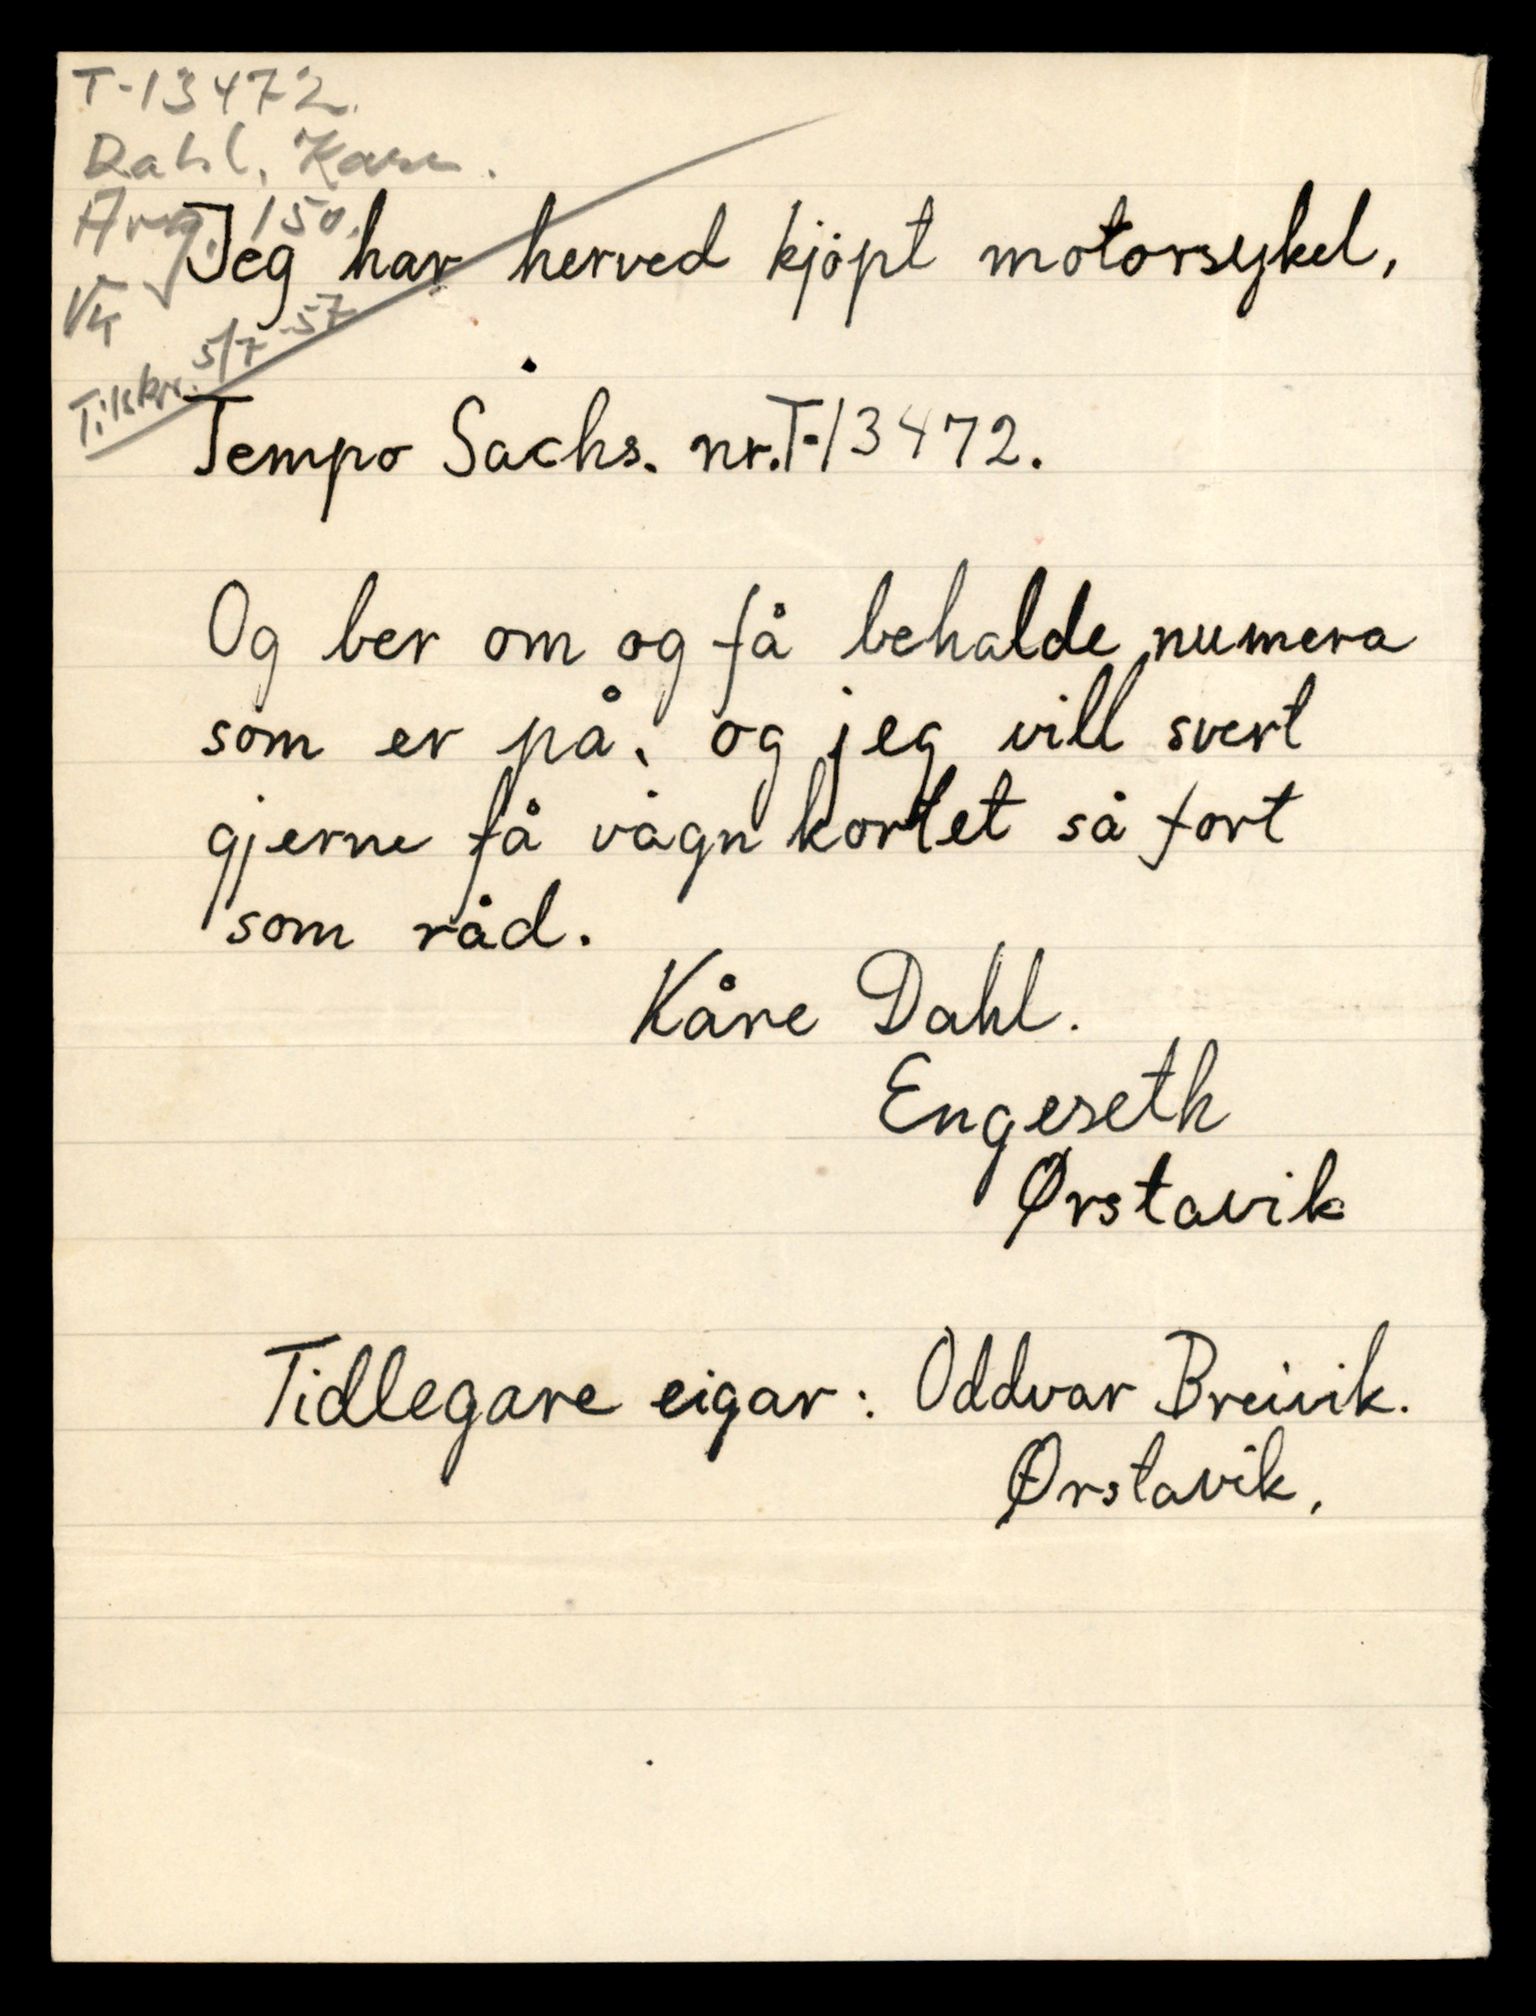 T-13472.
Dahl, Kåre.
Avg. 150.
Tilskr. 5/7-57
Jeg har herved kjöpt motorsykel,
Tempo Sachs. nr. T-13472.
Og ber om og få behalde numera
som er på, og jeg vill svert
gjerne få vågnkortet så fort
som råd.
Kåre Dahl.
Engeseth
Ørstavik
Tidlegare eigar: Oddvar Breivik.
Ørstavik,